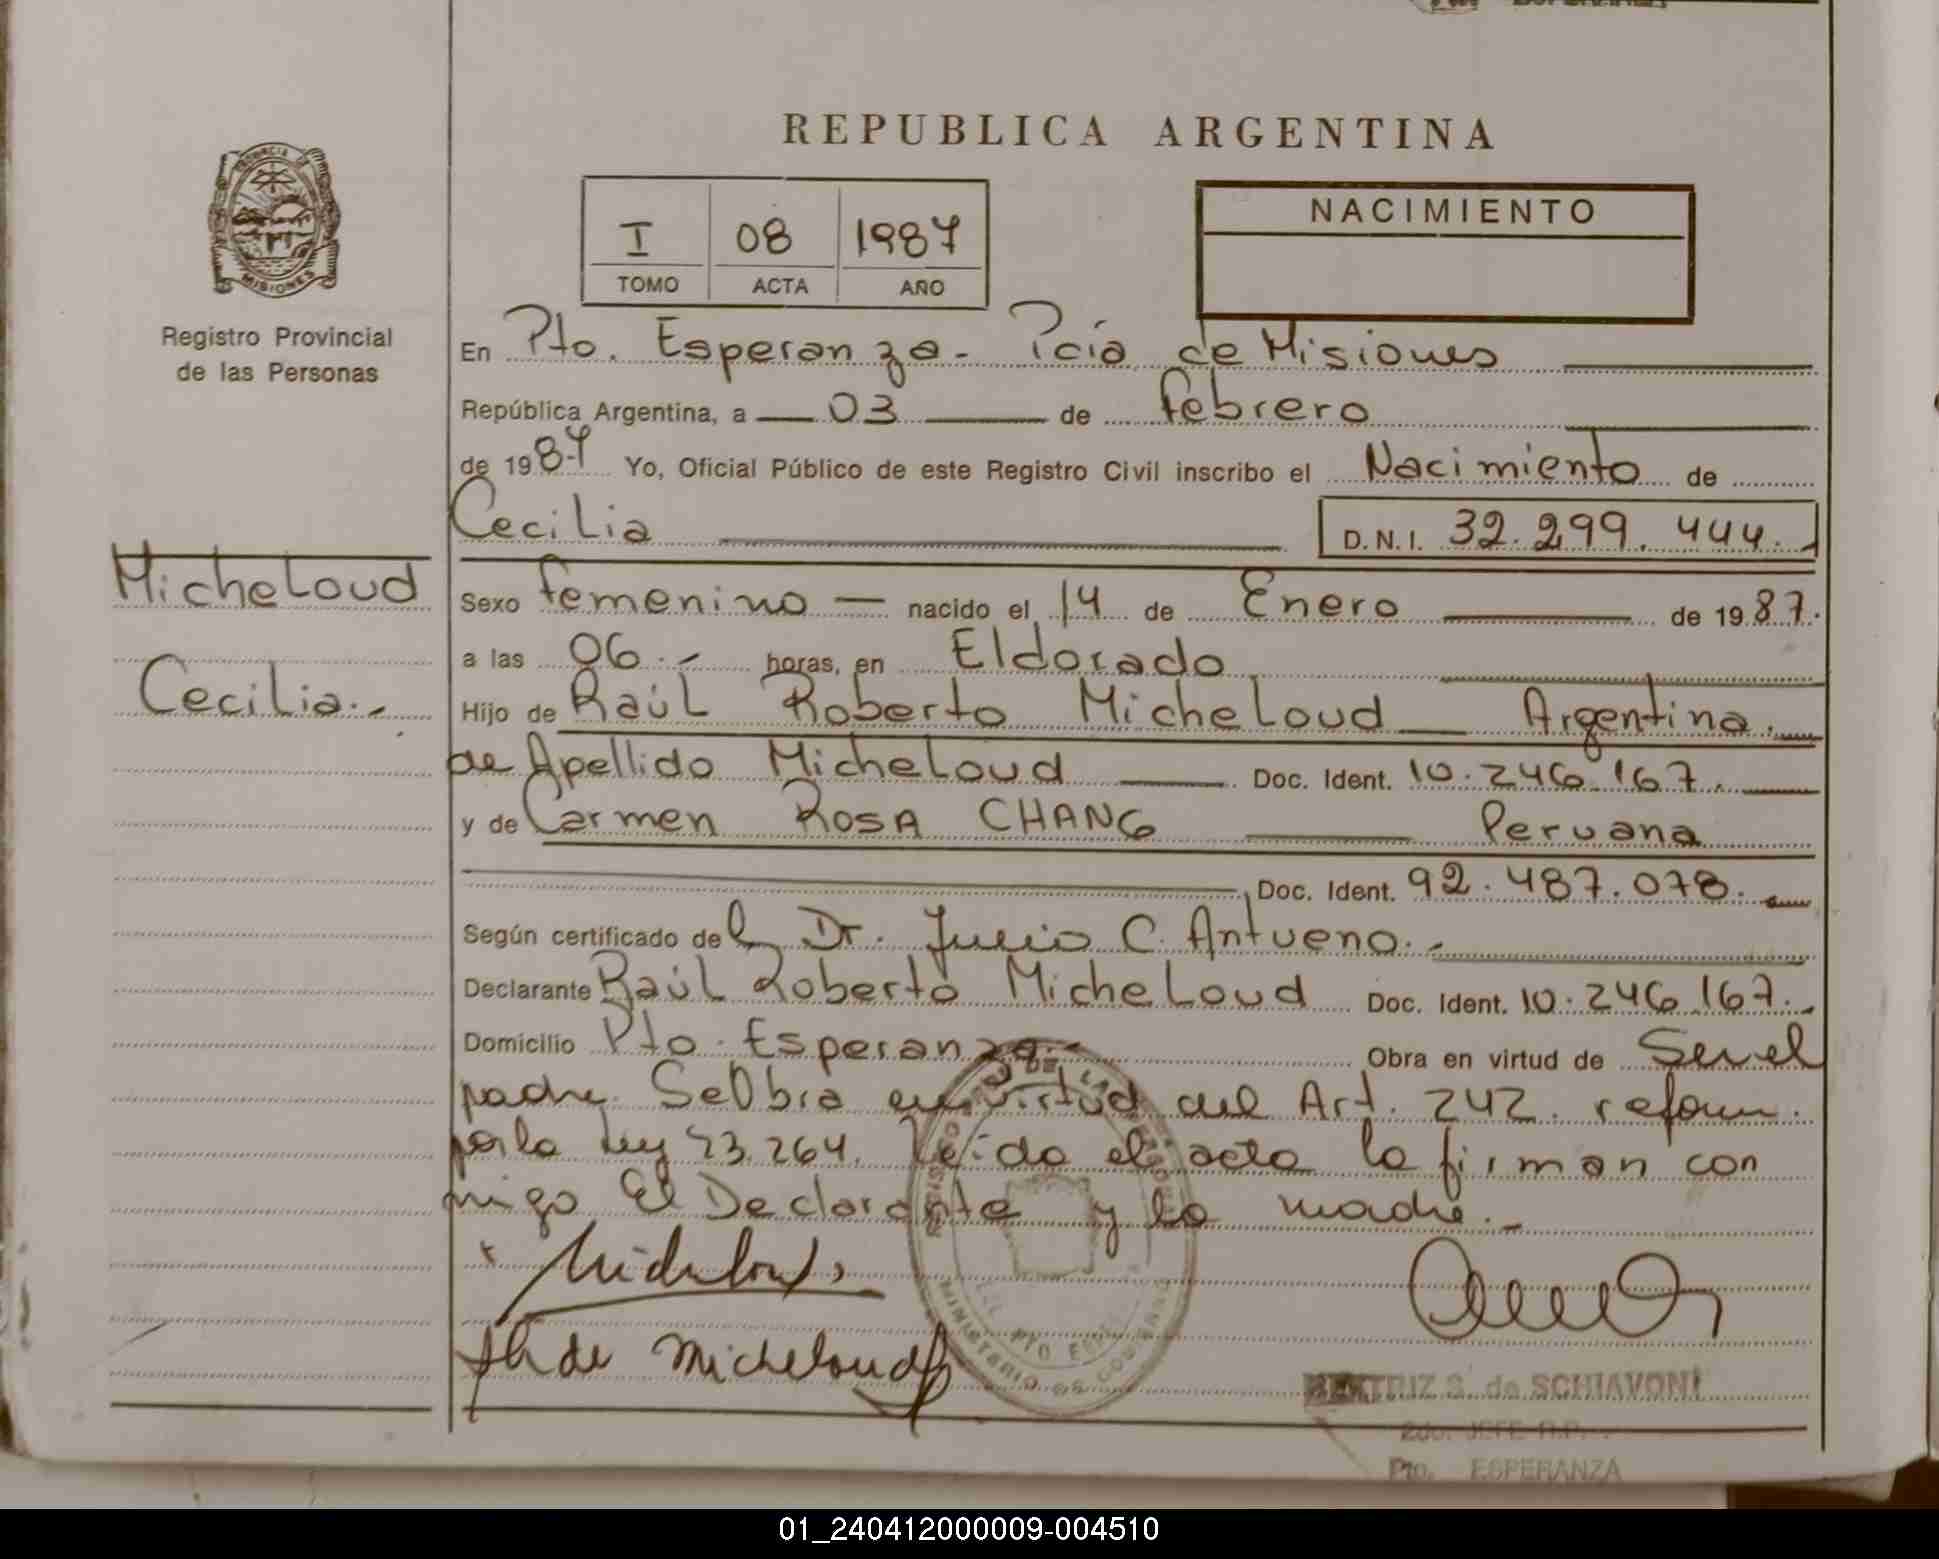 REPUBLICA ARGENTINA
PROVINCIA DE
MISIONES
Registro Provincial
de las Personas
I 08 1987
TOMO ACTA AÑO
NACIMIENTO
En Pto. Esperanza - Pcia de Misiones
República Argentina, a 03 de febrero
de 1987 Yo, Oficial Público de este Registro Civil inscribo el Nacimiento de
Cecilia D.N.I. 32.299.444.
Micheloud
Cecilia.-
Sexo femenino — nacido el 14 de Enero de 1987.
a las 06.- horas, en Eldorado
Hijo de Raúl Roberto Micheloud Argentina.
de Apellido Micheloud Doc. Ident. 10.246.167.
y de Carmen ROSA CHANG Peruana
Doc. Ident. 92.487.078.
Según certificado del Dr. Julio C. Antueno.-
Declarante Raúl Roberto Micheloud Doc. Ident. 10.246.167.
Domicilio Pto. Esperanza.- Obra en virtud de Ser el
padre. Se Obia en virtud del Art. 242. reform.
por la Ley 23.264. Leida el acta la firman con
migo El Declarante y la madre.-
Micheloud
de Micheloud
MINISTERIO DE GOBIERNO
BEATRIZ S. de SCHIAVONI
2do. JEFE R.P.
Pto. ESPERANZA
01_240412000009-004510